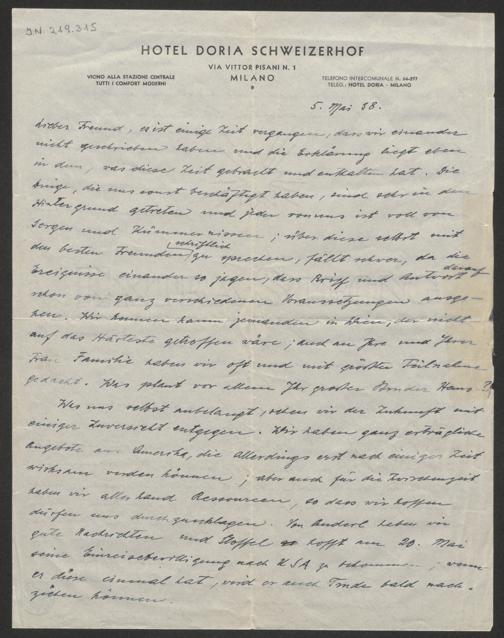 J.N. 219.315
HOTEL DORIA SCHWEIZERHOF
VIA VITTOR PISANI N. 1
MILANO
VICINO ALLA STAZIONE CENTRALE
TUTTI I COMFORT MODERNI
TELEFONO INTERCOMUNALE N. 66-897
TELEG.: HOTEL DORIA - MILANO
5. Mai 38.
Lieber Freund, es ist einige Zeit vergangen, dass wir einander
nicht geschrieben haben und die Erklärung liegt eben
in dem, was diese Zeit gebracht und enthalten hat. Die
Dinge, die uns sonst beschäftigt haben, sind sehr in den
Hintergrund getreten und jeder von uns ist voll von
Sorgen und Kümmernissen; über diese selbst mit
den besten Freunden schriftlich zu sprechen, fällt schwer, da die
Ereignisse einander so jagen, dass Brief und Antwort darauf
schon von ganz verschiedenen Voraussetzungen ausge-
hen. Wir kennen kaum jemanden in Wien, der nicht
auf das Härteste getroffen wäre; auch an Ihre und Ihrer
Frau Familie haben wir oft und mit größter Teilnahme
gedacht. Was plant vor allem Ihr großer Bruder Hans?
Was uns selbst anbelangt, sehen wir der Zukunft mit
einiger Zuversicht entgegen. Wir haben ganz erträgliche
Angebote aus Amerika, die allerdings erst nach einiger Zeit
wirksam werden können; aber auch für die Zwischenzeit
haben wir allerhand Ressourcen, so dass wir hoffen
dürfen uns durchzuschlagen. Von Anderl haben wir
gute Nachrichten und Stoffel hofft am 20. Mai
seine Einreisebewilligung nach USA zu bekommen; wenn
er diese einmal hat, wird er auch Trude bald nach-
ziehen können.